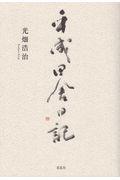 平成田舎日記
光畑浩治